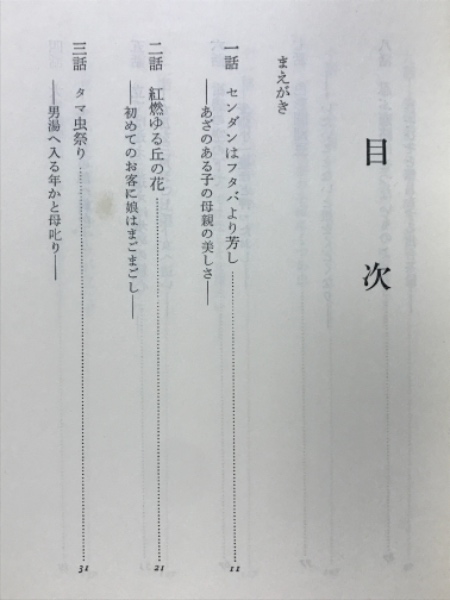 目次
まえがき
一話 センダンはフタバより芳し……………………11
――あざのある子の母親の美しさ――
二話 紅燃ゆる丘の花……………………21
――初めてのお客に娘はまごまごし――
三話 タマ虫祭り……………………31
――男湯へ入る年かと母叱り――